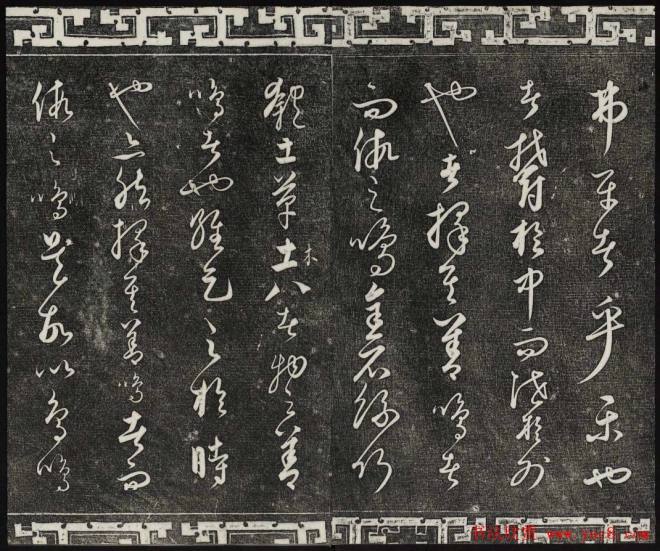 弗平者乎樂也
者鬱於中而泄於外
也者擇其善鳴者
而假之鳴金石絲竹
匏土革土木八者物之善
鳴者也維天之於時
也亦然擇其善鳴者而
假之鳴是故以鳥鳴
书法欣赏 www.yac8.com